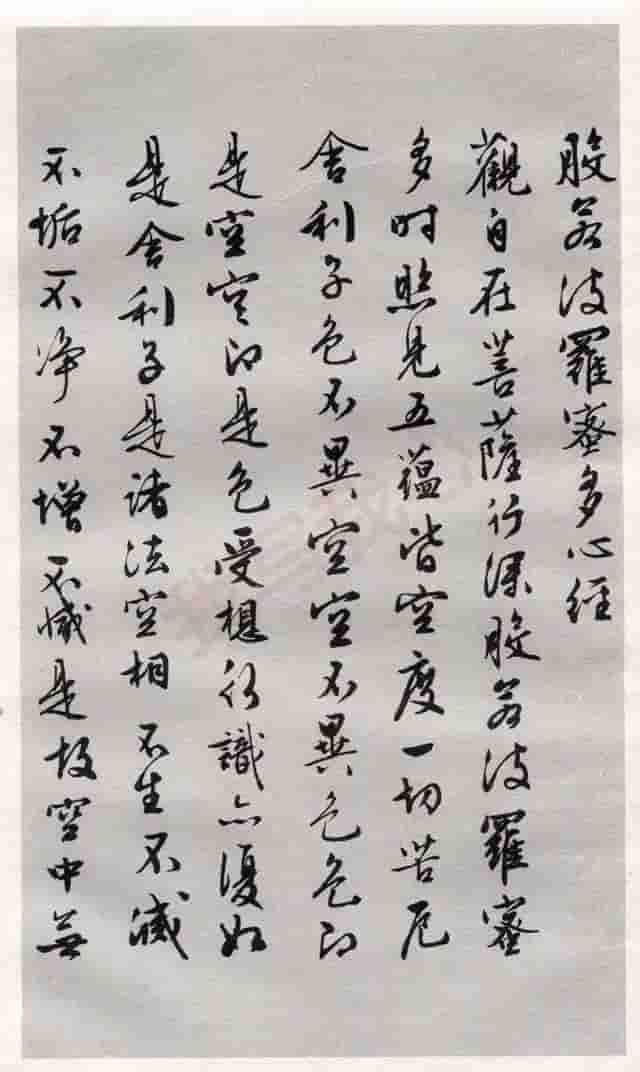 般若波羅蜜多心経
觀自在菩薩行深般若波羅蜜
多时照見五蕴皆空度一切苦厄
舍利子色不異空空不異色色即
是空空即是色受想行識亦復如
是舍利子是诸法空相不生不滅
不垢不净不增不减是故空中無